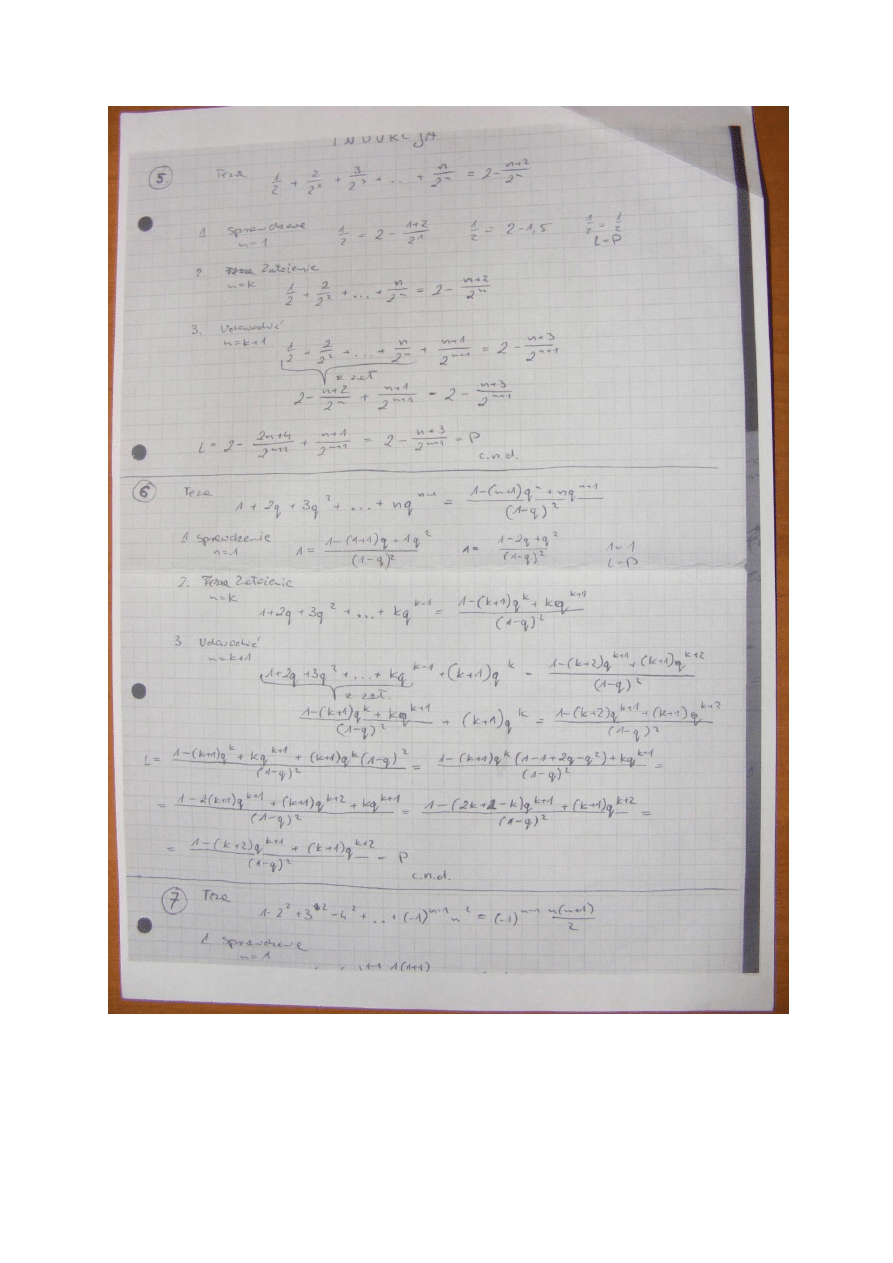 INDUKCJA
5 Teza 1/2 + 2/2² + 3/2³ + ... + n/2ⁿ = 2 - (n+2)/2ⁿ
1 Sprawdzenie 1/2 = 2 - (1+2)/2¹ 1/2 = 2-1,5 1/2 = 1/2
n=1 L=P
2 Założenie
n=k 1/2 + 2/2² + ... + n/2ⁿ = 2 - (n+2)/2ⁿ
3. Udowodnić
n=k+1 1/2 + 2/2² + ... + n/2ⁿ + (n+1)/2ⁿ⁺¹ = 2 - (n+3)/2ⁿ⁺¹
z zał
2 - (n+2)/2ⁿ + (n+1)/2ⁿ⁺¹ = 2 - (n+3)/2ⁿ⁺¹
L = 2 - (2n+4)/2ⁿ⁺¹ + (n+1)/2ⁿ⁺¹ = 2 - (n+3)/2ⁿ⁺¹ = P
c.n.d.
6 Teza 1 + 2q + 3q² + ... + nqⁿ⁻¹ = (1-(n+1)qⁿ + nqⁿ⁺¹)/(1-q)²
1 Sprawdzenie 1 = (1-(1+1)q + 1q²)/(1-q)² 1 = (1-2q+q²)/(1-q)² 1=1
n=1 L=P
2. Założenie
n=k 1+2q+3q² + ... + kqᵏ⁻¹ = (1-(k+1)qᵏ + kqᵏ⁺¹)/(1-q)²
3 Udowodnić
n=k+1 1+2q+3q² + ... + kqᵏ⁻¹ + (k+1)qᵏ = (1-(k+2)qᵏ⁺¹ + (k+1)qᵏ⁺²)/(1-q)²
z zał.
(1-(k+1)qᵏ + kqᵏ⁺¹)/(1-q)² + (k+1)qᵏ = (1-(k+2)qᵏ⁺¹ + (k+1)qᵏ⁺²)/(1-q)²
L = (1-(k+1)qᵏ + kqᵏ⁺¹ + (k+1)qᵏ(1-q)²)/(1-q)² = (1-(k+1)qᵏ(1-1+2q-q²) + kqᵏ⁺¹)/(1-q)² =
= (1-2(k+1)qᵏ⁺¹ + (k+1)qᵏ⁺² + kqᵏ⁺¹)/(1-q)² = (1-(2k+2-k)qᵏ⁺¹ + (k+1)qᵏ⁺²)/(1-q)² =
= (1-(k+2)qᵏ⁺¹ + (k+1)qᵏ⁺²)/(1-q)² = P
c.n.d.
7 Teza
1-2²+3²-4² + ... + (-1)ⁿ⁻¹n² = (-1)ⁿ⁻¹ n(n+1)/2
1 Sprawdzenie
n=1
1(1+1)